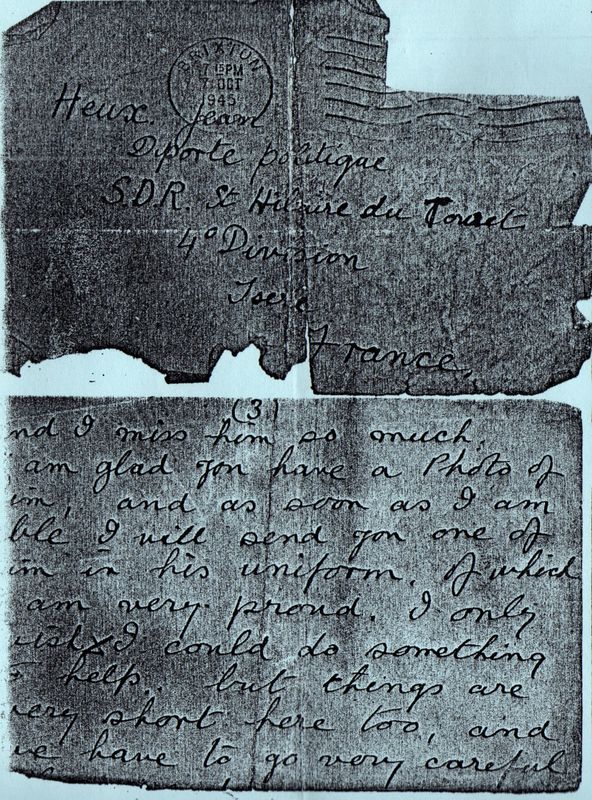 BRIXTON
7 15 PM
7 OCT
1945
Heux. Jean
Diporte politique
S.D.R. St Hilaire du Touvet
4° Division
Isere
France.
(3)
nd I miss him so much.
am glad you have a Photo of
im, and as soon as I am
ble I will send you one of
im in his uniform. Of which
am very proud. I only
wish I could do something
help.. but things are
very short here too, and
we have to go very careful